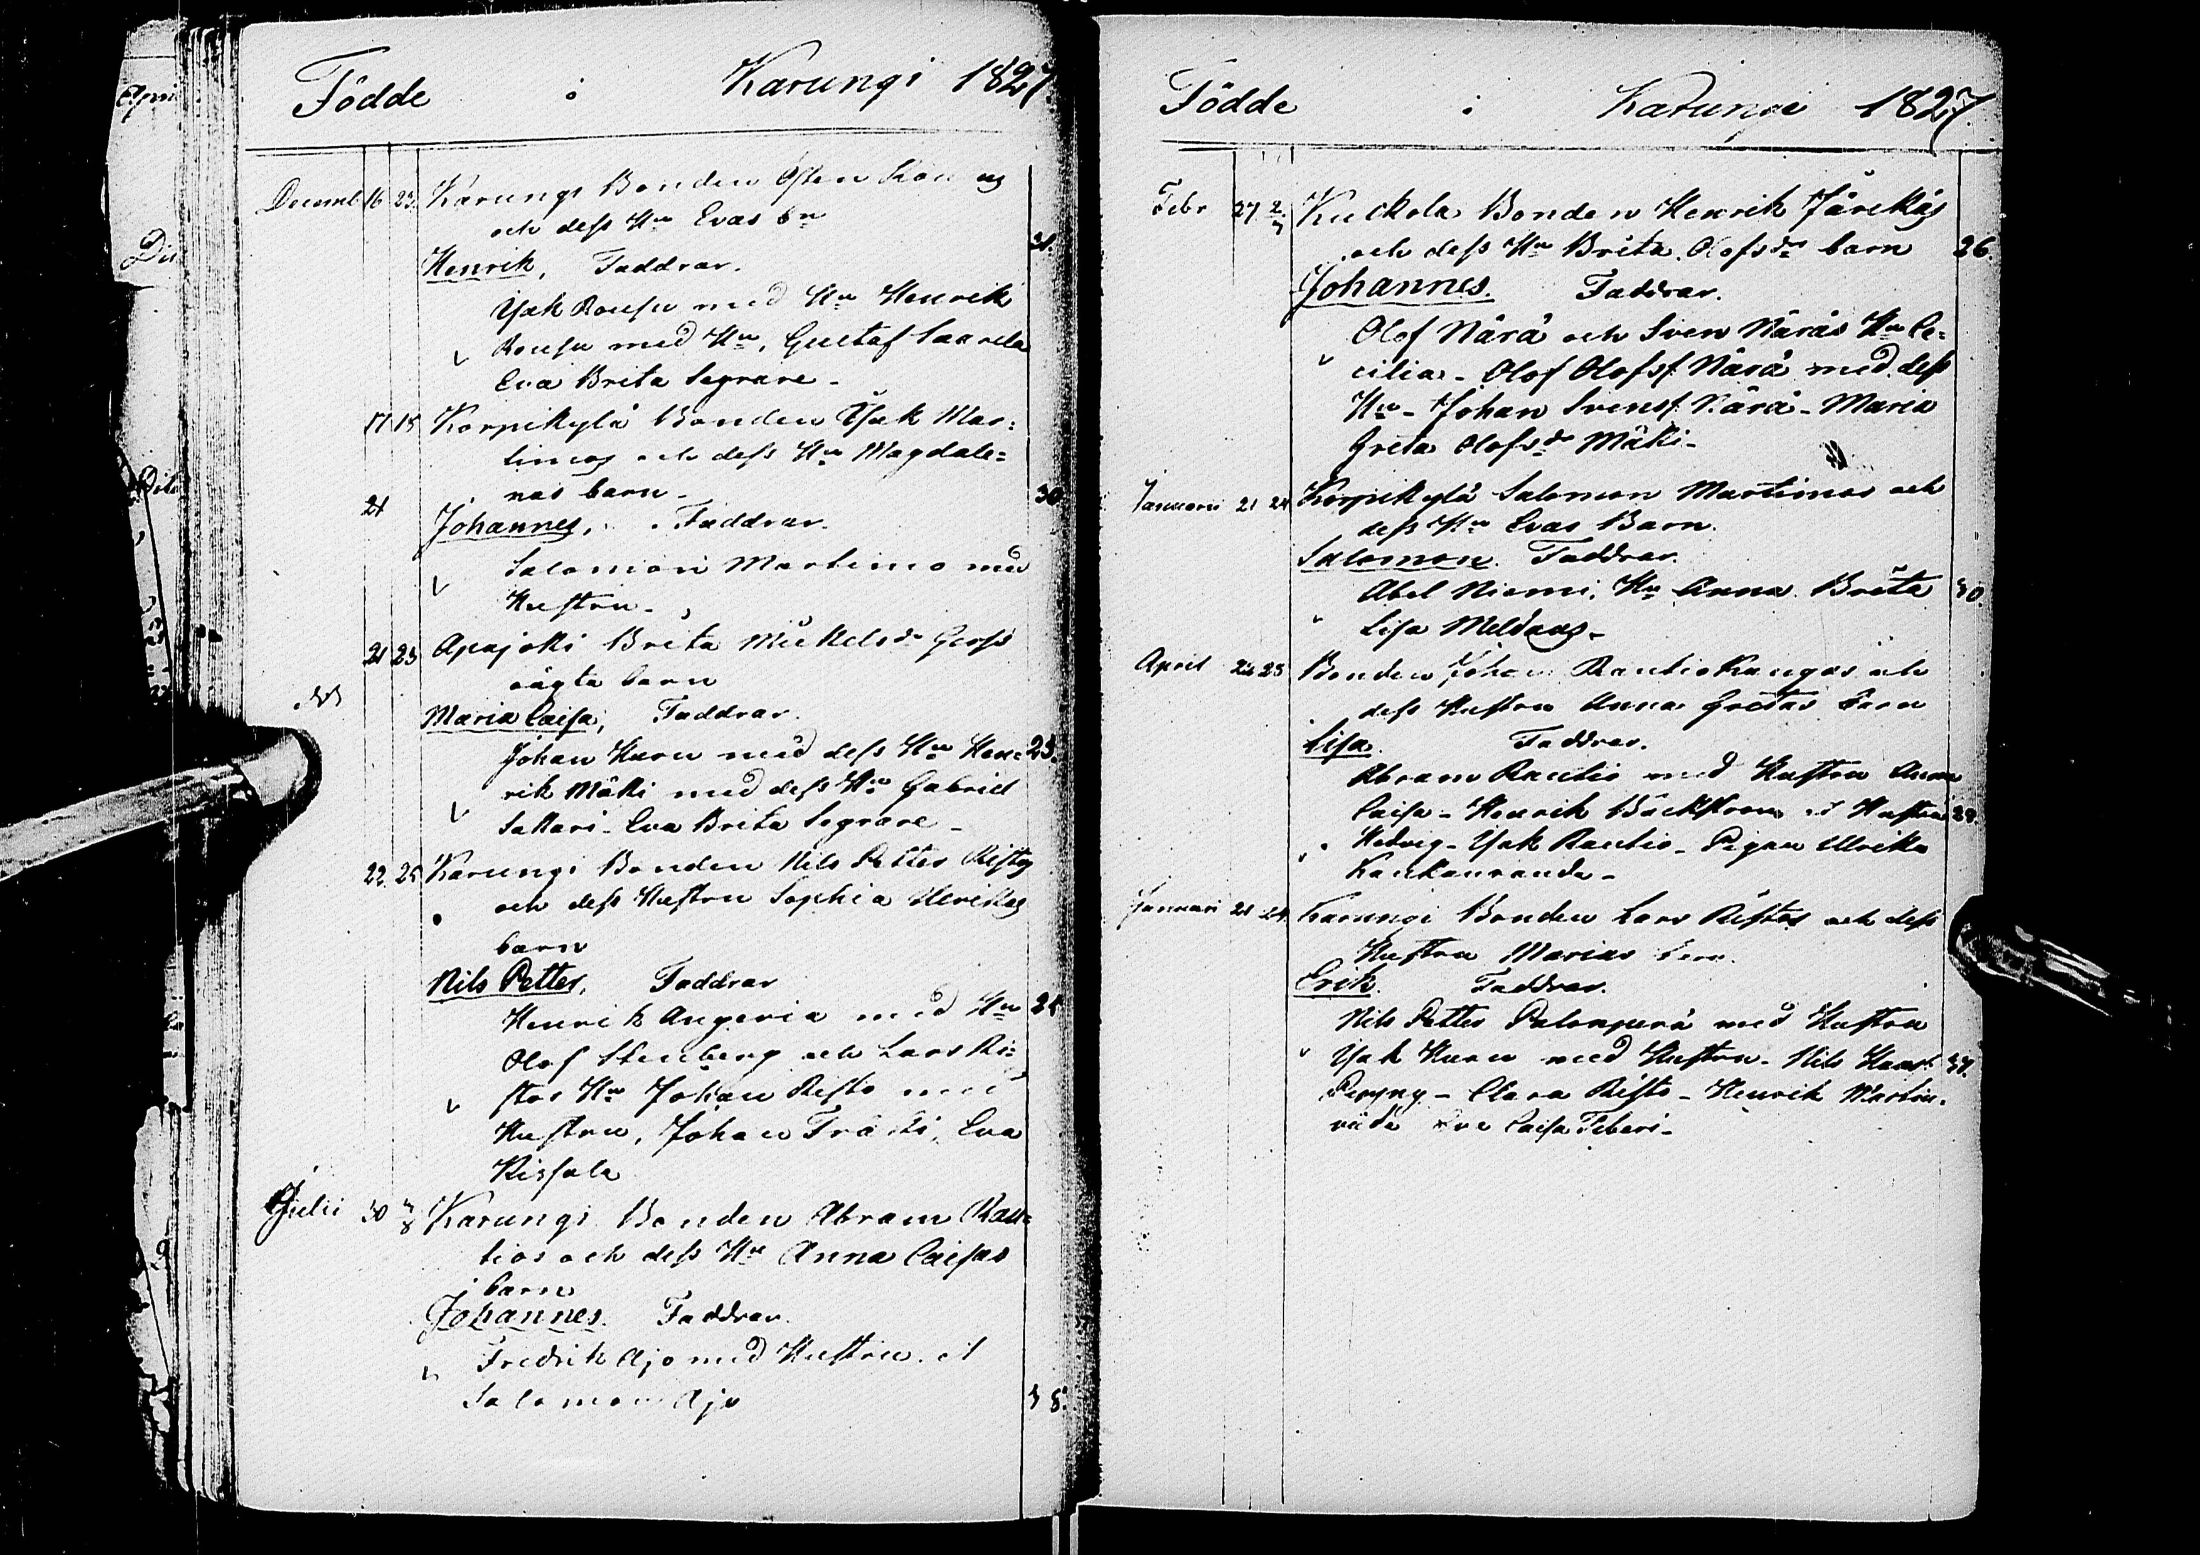 Födde i Karungi 1827.
Decemb 16 23 Karungi Bonden Östen
och dess Hu Evas bn
31.
Henrik, Faddrar.
Isak Rousu med Hu Henrik
Rousu med Hu, Gustaf Saarela
Eva Brita Segrare -
17 18 Korpikylä Bonden Isak Mar=
timos och dess Hu Magdale=
nas barn -
30
21
Johannes, Faddrar.
Salomon Martimo med
Hustru -
21 23 Apajoki Brita Mickelsdr
oägta barn
Maria Caisa, Faddrar.
Johan Kuru med dess Hu Hen= 23.
rik Mäki med dess Hu Gabriel
Sakari - Eva Brita Segrare -
22 25 Karungi Bonden Nils Petter Ristos
och dess Hustru Sophia Ulrikas
barn
Nils Petter, Faddrar
Henrik Angeria med Hu
Olof Stenberg och Lars Ri=
stos Hu Johan Risto med
Hustru, Johan Eva
Julii 30 Karungi Bonden Abram Rau=
tios och dess Hu Anna Caisas
barn
Johannes. Faddrar.
Fredrik Ajo med Hustru. et
Salomon Ajo

Födde i Karungi 1827
Febr 27 Kuckola Bonden Henrik
och dess Hu Brita Olofsdr barn 26.
Johannes. Faddrar.
Olof Närä och Sven Näräs Hu Ce=
cilia - Olof Olofss. Närä med dess
Hu - Johan Svenss. Närä - Maria
Greta Olofsdr Mäki -
Januarii 21 24 Korpikylä Salomon Martimos och
dess Hu Evas Barn.
Salomon. Faddrar.
Abel Niemi, Hu Anna Brita 30.
Lisa
April 25 Bonden Johan Rautiokangas och
dess Hustru Anna Gretas Barn
Lisa. Faddrar.
Abram Rautio med Hustru Anna
Caisa - Henrik Bäckström et Hustru
Hedvig - Isak Rautio - Pigan Ulrika
Kaukauranda -
Januari 21 24 Karungi Bonden Lars Ristos och dess
Hustru Marias barn.
Erik. Faddrar.
Nils Petter Palonperä med Hustru
Isak Kuru med Hustru - Nils
- Clara Risto - Henrik
Eva Caisa